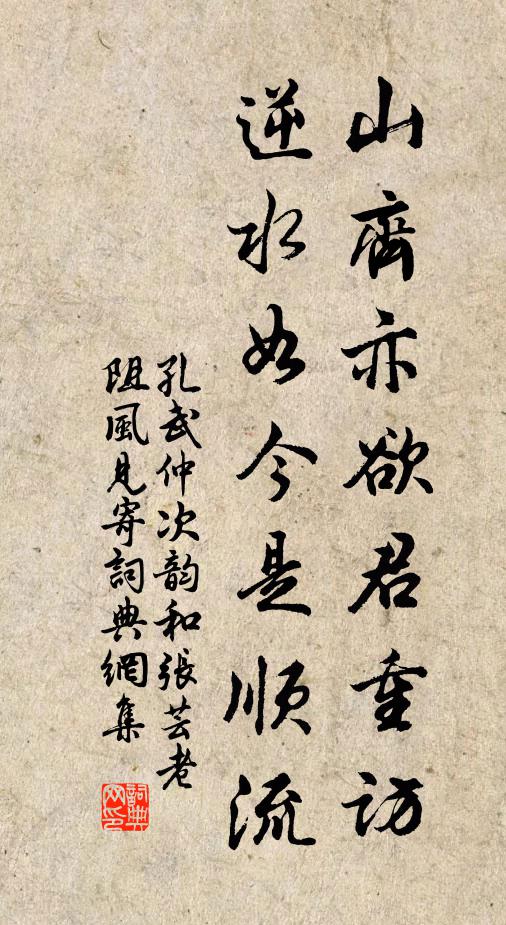 山齋亦欲君重访
逆水如今是順流
孔武仲次韵和張芸老
阻風見寄詞典網集
詞典网印